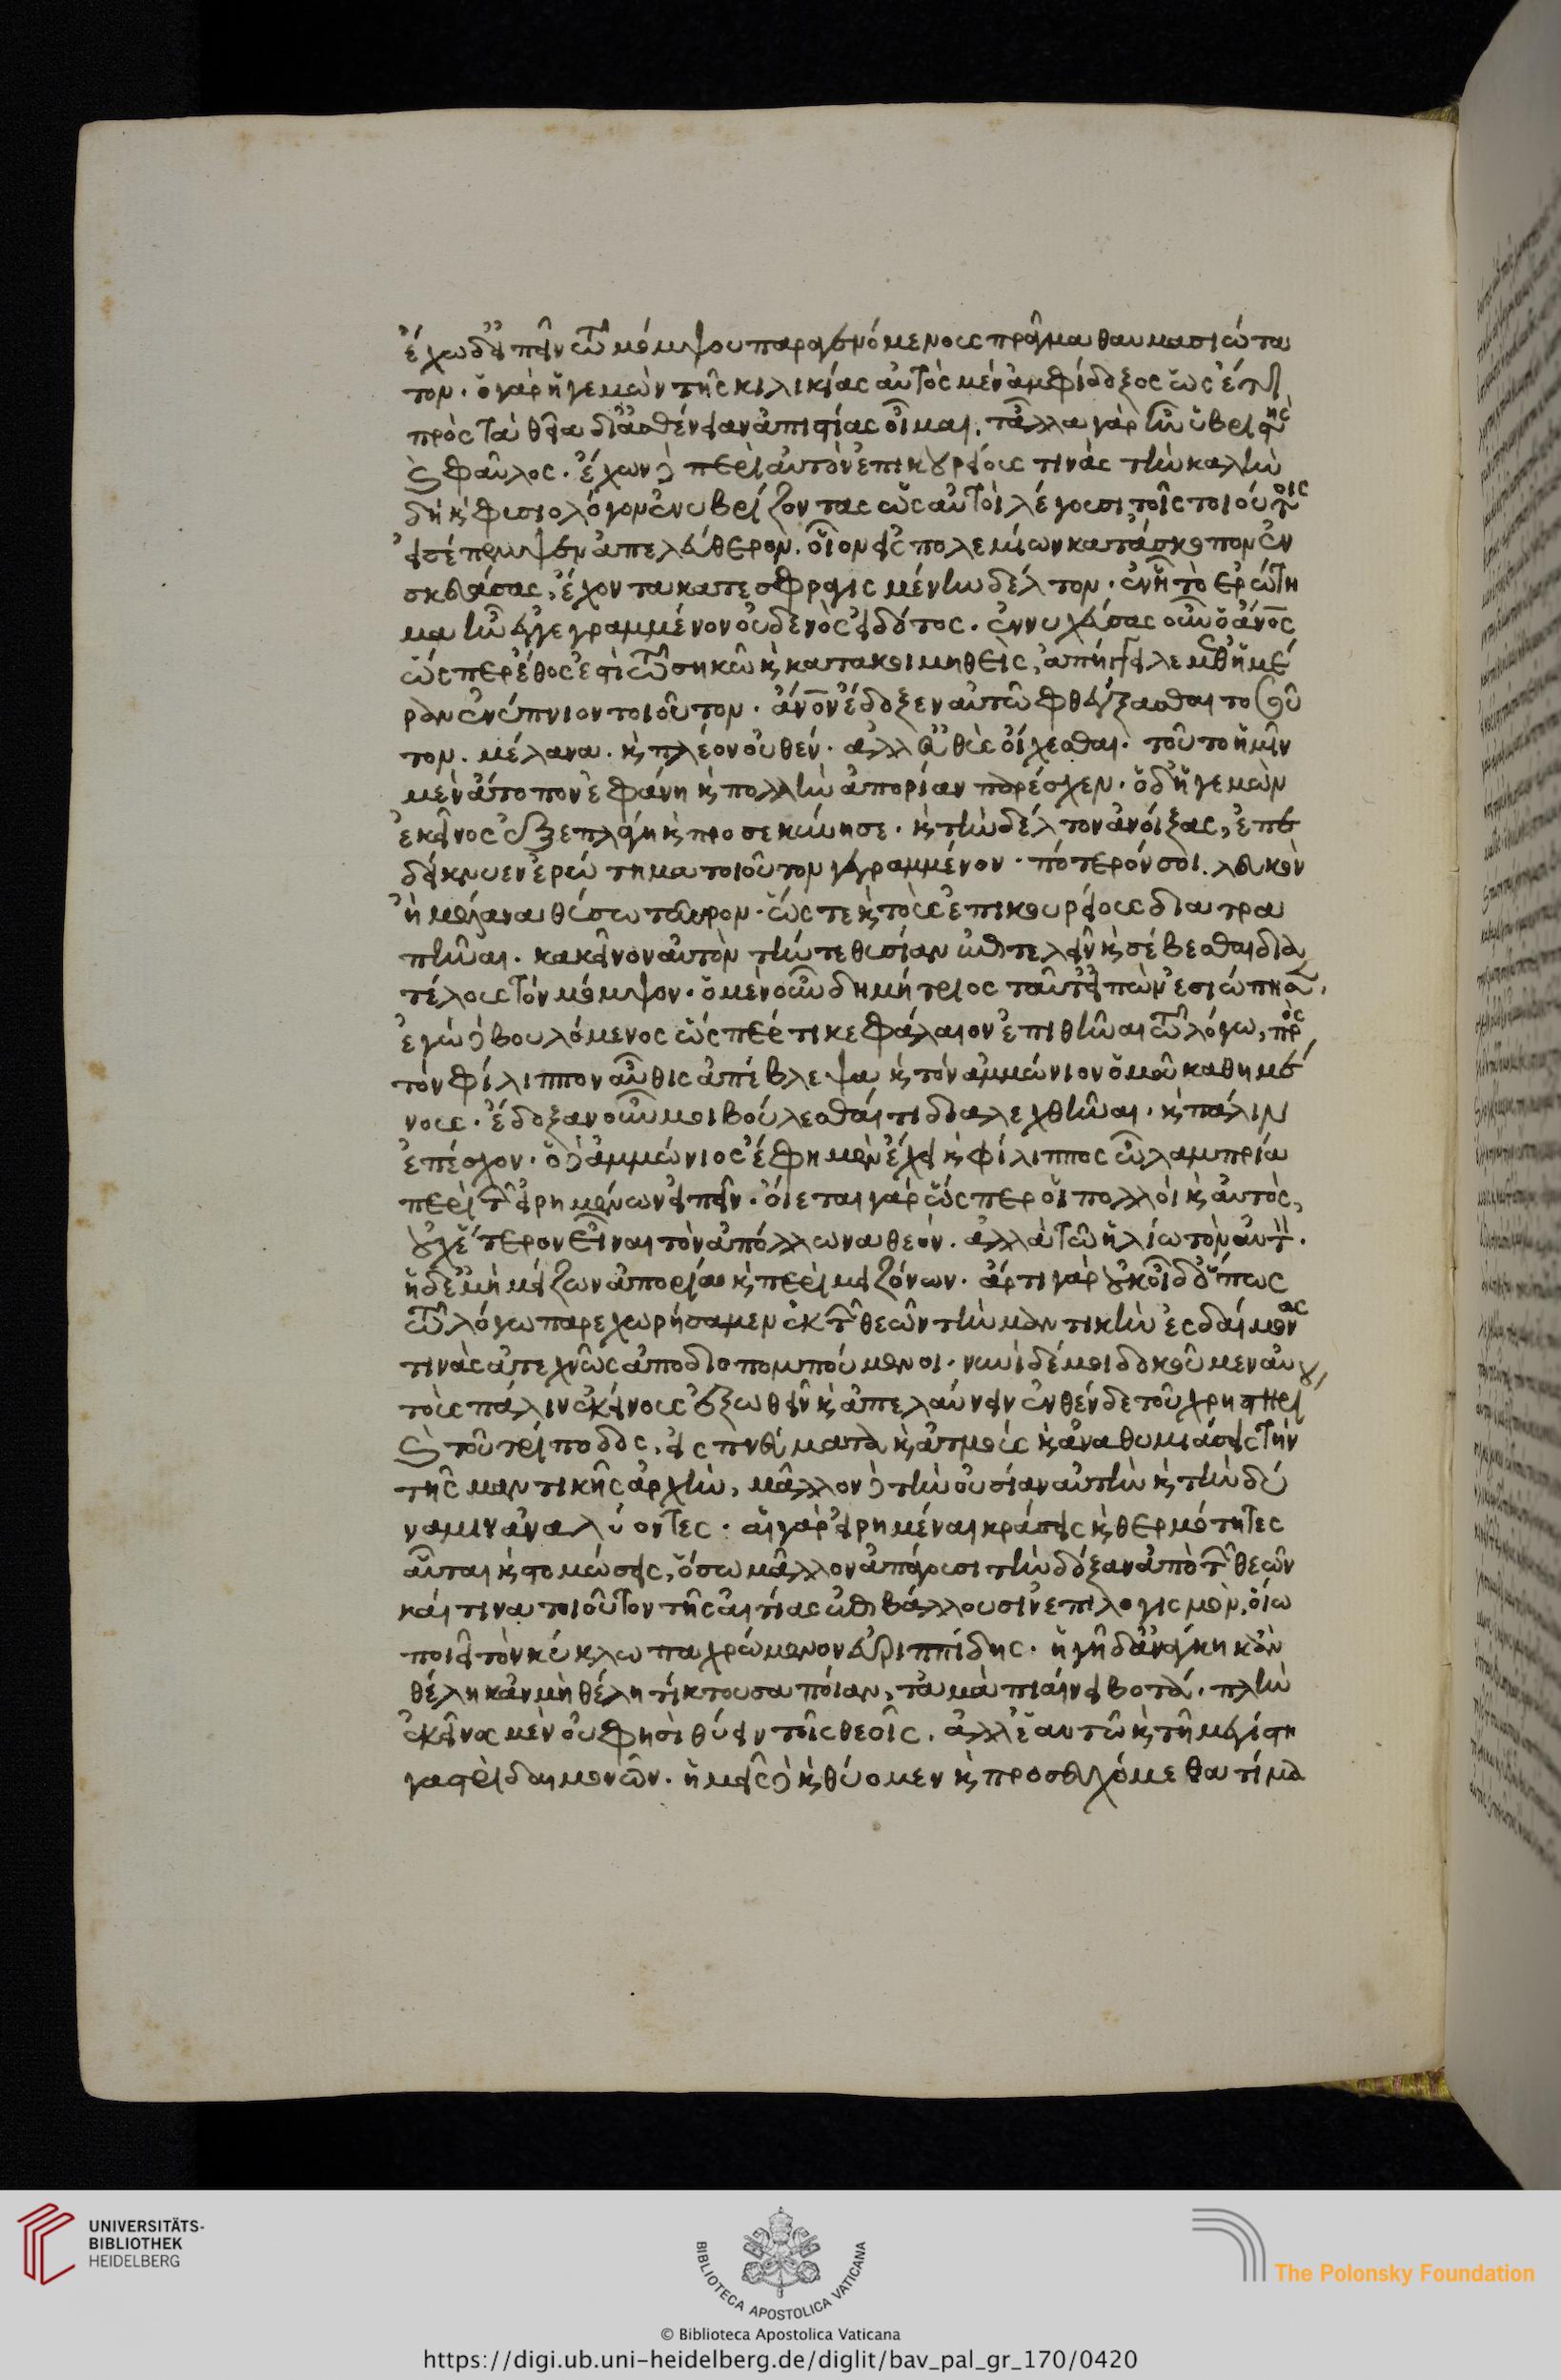 ἔχω δ' εἰπεῖν τῶ μόψου παραγενόμενος πρᾶγμα θαυμασιώτα
τον. ὁ γὰρ ἡγεμὼν τῆς κιλικίας αὐτὸς μὲν ἀμφίδοξος ὡς ἔτι
πρὸς τὰ θεῖα δι' ἀσθένειαν ἀπιστίας οἶμαι. τἄλλα γὰρ ἦν ὑβριστὴς
καὶ φαῦλος. ἔχων δὲ περὶ αὐτὸν ἐπικουρείους τινὰς τὴν καλὴν
δὴ καὶ φυσιολόγον ἐνυβρίζοντας ὡς αὐτοὶ λέγουσι τοῖς τοιούτοις
εἰσέπεμψεν ἀπελεύθερον. οἷον εἰς πολεμίων κατάσκοπον ἐν
σκευάσας, ἔχοντα κατεσφραγισμένην δέλτον. ἐν ᾗ τὸ ἐρώτη
μα ἦν ἐγγεγραμμένον οὐδενὸς εἰδότος. ἐννυχεύσας οὖν ὁ ἄνος
ὥσπερ ἔθος ἐστὶ τῶ σηκῶ καὶ κατακοιμηθεὶς, ἀπήγγειλε μεθ' ἡμέ
ραν ἐνύπνιον τοιοῦτον. ἄνον ἔδοξεν αὐτῶ φθέγξασθαι τοσοῦ
τον. μέλανα. καὶ πλέον οὐθέν. ἀλλ' εὐθὺς οἴχεσθαι. τοῦτο ἡμῖν
μὲν ἄτοπον ἐφάνη καὶ πολλὴν ἀπορίαν παρέσχεν. ὁ δ' ἡγεμὼν
ἐκεῖνος ἐξεπλάγη καὶ προσεκύνησε. καὶ τὴν δέλτον ἀνοίξας, ἐπε
δείκνυεν ἐρώτημα τοιοῦτον γεγραμμένον. πότερόν σοι λευκὸν
ἢ μέλανα θύσω ταῦρον. ὥστε καὶ τοὺς ἐπικουρείους διατρα
πῆναι. κακεῖνον αὐτὸν τήν τε θυσίαν ἐπιτελεῖν καὶ σέβεσθαι διὰ
τέλους τὸν μόψον. ὁ μὲν οὖν δημήτριος ταῦτ' εἰπὼν ἐσιώπησ.
ἐγὼ δὲ βουλόμενος ὥσπερ τι κεφάλαιον ἐπιθῆναι τῶ λόγω, πρὸς
τὸν φίλιππον αὖθις ἀπέβλεψα καὶ τὸν ἀμμώνιον ὁμοῦ καθημέ
νους. ἔδοξαν οὖν μοι βούλεσθαί τι διαλεχθῆναι. καὶ πάλιν
ἐπέσχον. ὁ δὲ ἀμμώνιος ἔφη μὲν ἔχει καὶ φίλιππος ὦ λαμπρία
περὶ τῶν εἰρημένων εἰπεῖν. οἴεται γὰρ ὥσπερ οἱ πολλοὶ καὶ αὐτὸς,
οὐχ ἕτερον εἶναι τὸν ἀπόλλωνα θεόν. ἀλλὰ τῶ ἡλίω τὸν αὐτ.
ἡ δ' ἐμὴ μείζων ἀπορία καὶ περὶ μειζόνων. ἄρτι γὰρ οὐκ οἶδ' ὅπως
τῶ λόγω παρεχωρήσαμεν ἐκ τῶν θεῶν τὴν μαντικὴν ἐς δαίμονας
τινὰς ἀτεχνῶς ἀποδιοπομπούμενοι. νυνὶ δέ μοι δοκοῦμεν αὐ
τοὺς πάλιν ἐκείνους ἐξωθεῖν καὶ ἀπελαύνειν ἐνθένδε τοῦ χρηστηρίου
καὶ τοῦ τρίποδος. εἰς πνεύματα καὶ ἀτμοὺς καὶ ἀναθυμιάσεις τὴν
τῆς μαντικῆς ἀρχὴν, μᾶλλον δὲ τὴν οὐσίαν αὐτὴν καὶ τὴν δύ
ναμιν ἀναλύοντες. αἱ γὰρ εἰρημέναι κράσεις καὶ θερμότητες
αὗται καὶ στομώσεις, ὅσω μᾶλλον ἀπάγουσι τὴν δόξαν ἀπὸ τῶν θεῶν
καί τινα τοιοῦτον τῆς αἰτίας ὑποβάλλουσιν ἐπιλογισμὸν, οἵω
ποιεῖ τὸν κύκλωπα χρώμενον εὐριππίδης. ἡ γῆ δ' ἀνάγκη κἂν
θέλη κἂν μὴ θέλη τίκτουσα ποίαν, τἀμὰ πιαίνει βοτά. πλὴν
ἐκεῖνος μὲν οὔ φησὶ θύειν τοῖς θεοῖς. ἀλλ' ἑαυτῶ καὶ τῆ μεγίστη
γαστρὶ δαιμονῶν. ἡμεῖς δὲ καὶ θύομεν καὶ προσευχόμεθα τί μα
UNIVERSITÄTS-
BIBLIOTHEK
HEIDELBERG
BIBLIOTECA APOSTOLICA VATICANA
The Polonsky Foundation
© Biblioteca Apostolica Vaticana
https://digi.ub.uni-heidelberg.de/diglit/bav_pal_gr_170/0420